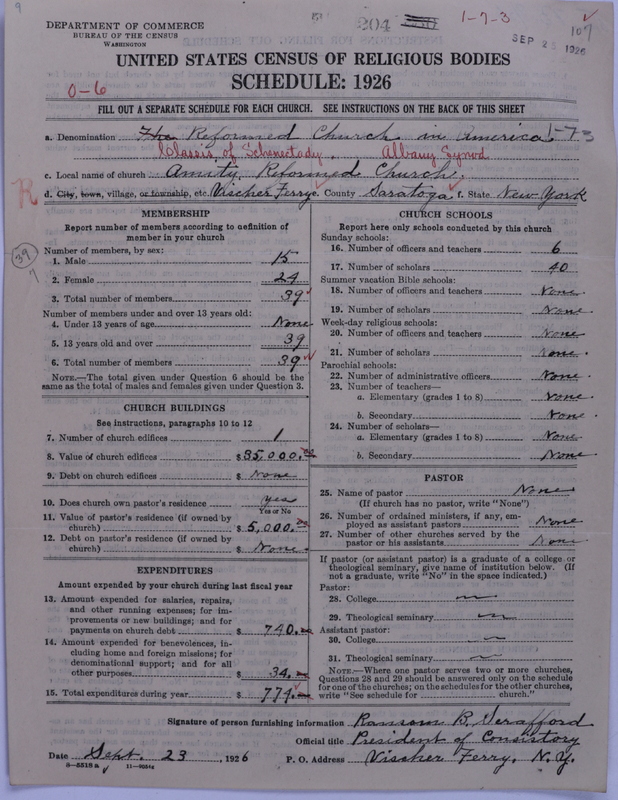 9
DEPARTMENT OF COMMERCE
BUREAU OF THE CENSUS
WASHINGTON
204
1-7-3
SEP 2 1926
107
UNITED STATES CENSUS OF RELIGIOUS BODIES
SCHEDULE: 1926
0-6
FILL OUT A SEPARATE SCHEDULE FOR EACH CHURCH. SEE INSTRUCTIONS ON THE BACK OF THIS SHEET
a. Denomination The Reformed Church in America 1-73
Classis of Schenectady, Albany Synod
c. Local name of church Amity Reformed Church,
R
d. City, town, village, or township, etc. Vischer Ferry. County Saratoga f. State New York
MEMBERSHIP
Report number of members according to definition of
member in your church
39
7
Number of members, by sex:
1. Male 15
2. Female 24
3. Total number of members 39
Number of members under and over 13 years old:
4. Under 13 years of age None
5. 13 years old and over 39
6. Total number of members 39
NOTE.—The total given under Question 6 should be the
same as the total of males and females given under Question 3.
CHURCH BUILDINGS
See instructions, paragraphs 10 to 12
7. Number of church edifices 1
8. Value of church edifices $35,000.00
9. Debt on church edifices $ None
10. Does church own pastor's residence yes
Yes or No
11. Value of pastor's residence (if owned by
church) $ 5,000.00
12. Debt on pastor's residence (if owned by
church) $ None
EXPENDITURES
Amount expended by your church during last fiscal year
13. Amount expended for salaries, repairs,
and other running expenses; for im-
provements or new buildings; and for
payments on church debt $ 740.
14. Amount expended for benevolences, in-
cluding home and foreign missions; for
denominational support; and for all
other purposes $ 34.
15. Total expenditures during year $ 774.
CHURCH SCHOOLS
Report here only schools conducted by this church
Sunday schools:
16. Number of officers and teachers 6
17. Number of scholars 40
Summer vacation Bible schools:
18. Number of officers and teachers None
19. Number of scholars None
Week-day religious schools:
20. Number of officers and teachers None
21. Number of scholars None.
Parochial schools:
22. Number of administrative officers None
23. Number of teachers—
a. Elementary (grades 1 to 8) None
b. Secondary None
24. Number of scholars—
a. Elementary (grades 1 to 8) None
b. Secondary None
PASTOR
25. Name of pastor None
(If church has no pastor, write "None")
26. Number of ordained ministers, if any, em-
ployed as assistant pastors None
27. Number of other churches served by the
pastor or his assistants None
If pastor (or assistant pastor) is a graduate of a college or
theological seminary, give name of institution below. (If
not a graduate, write "No" in the space indicated.)
Pastor:
28. College
29. Theological seminary
Assistant pastor:
30. College
31. Theological seminary
NOTE.—Where one pastor serves two or more churches,
Questions 28 and 29 should be answered only on the schedule
for one of the churches; on the schedules for the other churches,
write "See schedule for church."
Signature of person furnishing information Ransom R. Serafford
Official title President of Consistory
Date Sept. 23, 1926 P. O. Address Vischer Ferry, N. Y.